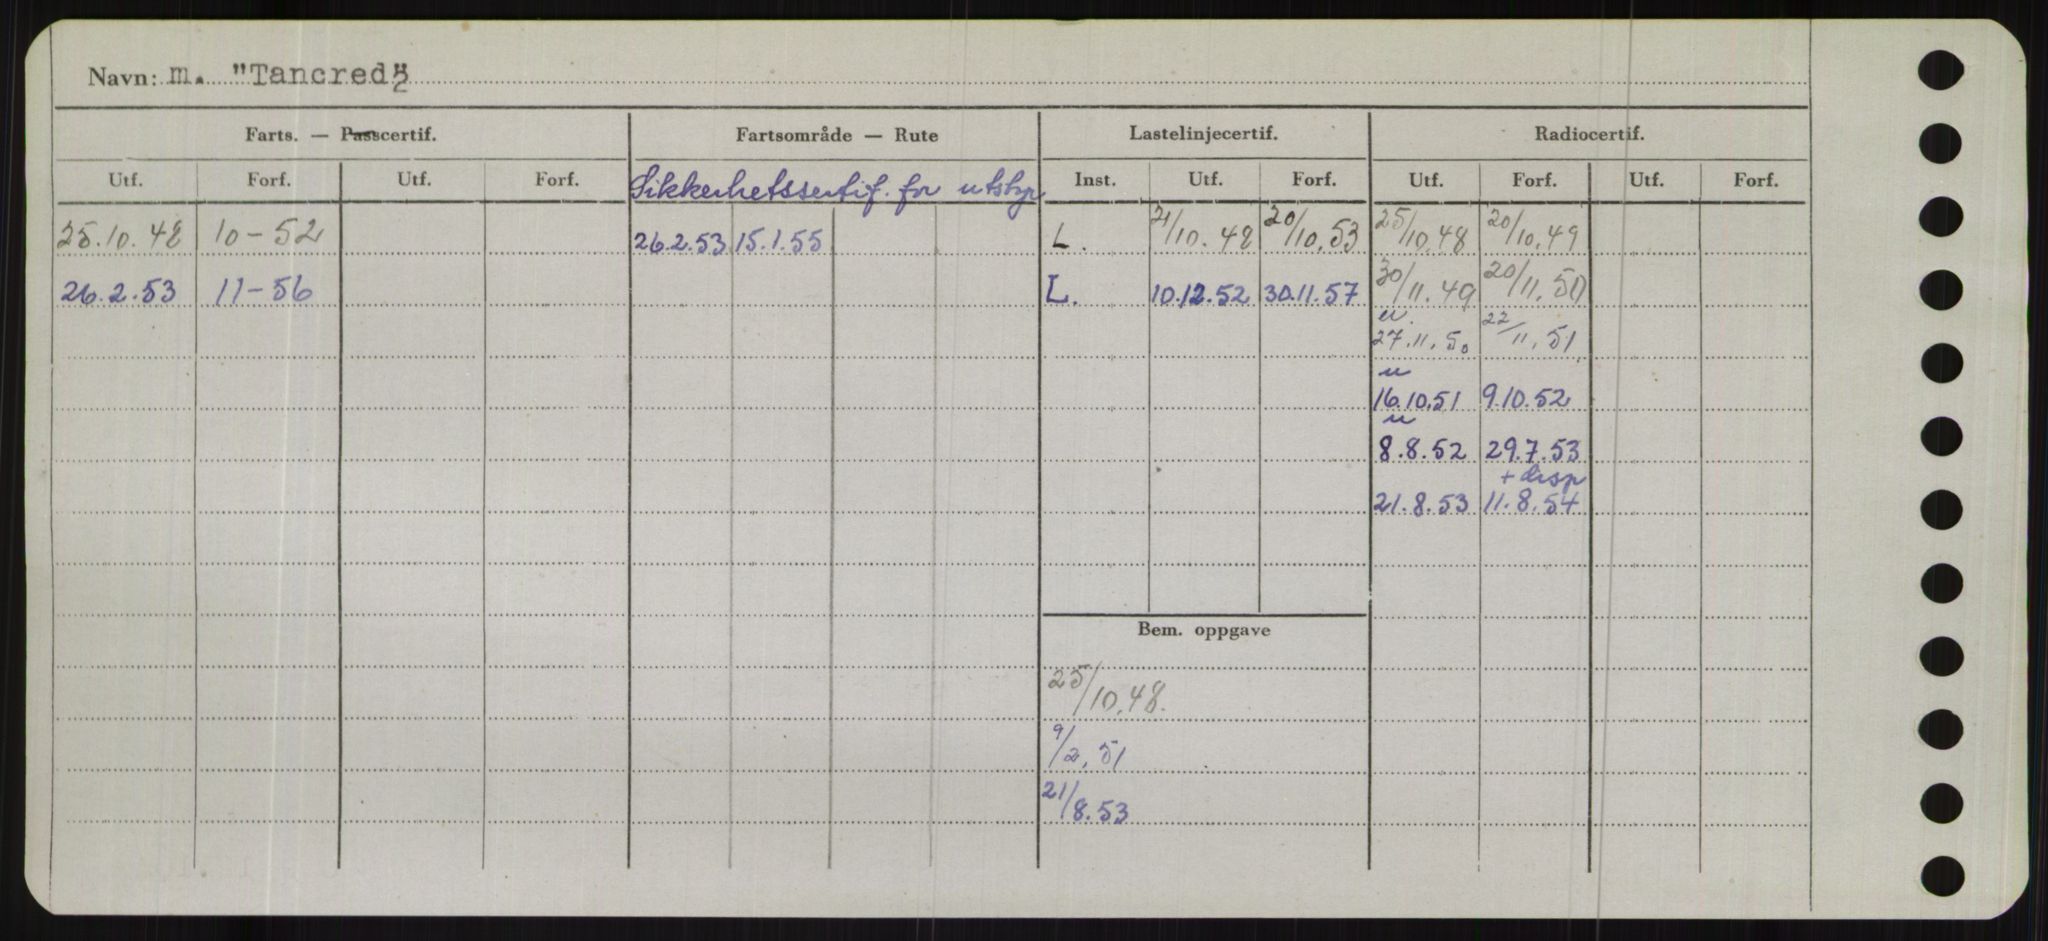 Navn: m. "Tancred"
Farts. — Passcertif. Fartsområde — Rute Lastelinjecertif. Radiocertif.
Utf. Forf. Utf. Forf. Sikkerhetssertif. for utstyr Inst. Utf. Forf. Utf. Forf. Utf. Forf.
25.10.48 10-52 26.2.53 15.1.55 L. 21/10.48 20/10.53 25/10.48 20/10.49
26.2.53 11-56 L. 10.12.52 30.11.57 30/11.49 20/11.50
u.
27.11.50 22/11.51
u
16.10.51 9.10.52
u
8.8.52 29.7.53
+ disp
21.8.53 11.8.54
Bem. oppgave
25/10.48.
9/2.51
21/8.53